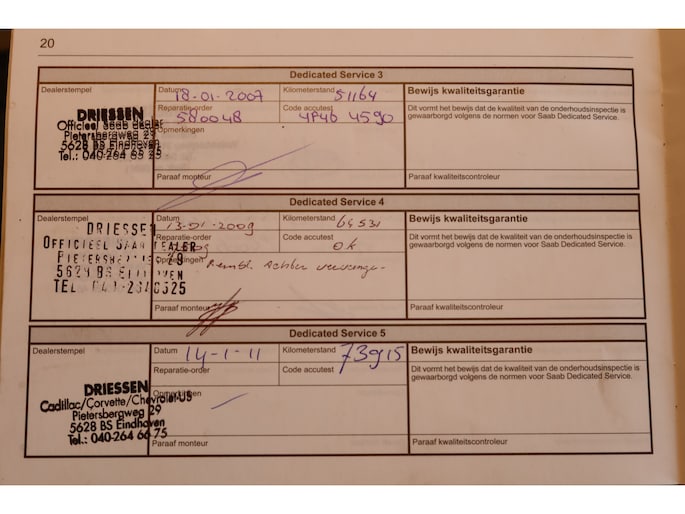 20
Dedicated Service 3
Dealerstempel
Datum 18-01-2007
Kilometerstand 51164
Bewijs kwaliteitsgarantie
Reparatie-order 580048
Code accutest 4P4b 4590
Dit vormt het bewijs dat de kwaliteit van de onderhoudsinspectie is
gewaarborgd volgens de normen voor Saab Dedicated Service.
DRIESSEN
Officieel Saab dealer
Pietersbergweg 29
5628 BS Eindhoven
Tel.: 040-264 65 25
Opmerkingen
Paraaf monteur
Paraaf kwaliteitscontroleur
Dedicated Service 4
Dealerstempel
Datum 13-01-2009
Kilometerstand 64531
Bewijs kwaliteitsgarantie
Reparatie-order
Code accutest ok
Dit vormt het bewijs dat de kwaliteit van de onderhoudsinspectie is
gewaarborgd volgens de normen voor Saab Dedicated Service.
DRIESSEN
OFFICIEEL SAAB DEALER
29
5628 BS EINDHOVEN
TEL.
Opmerkingen
Achter
Paraaf monteur
Paraaf kwaliteitscontroleur
Dedicated Service 5
Dealerstempel
Datum 14-1-11
Kilometerstand 73915
Bewijs kwaliteitsgarantie
Reparatie-order
Code accutest
Dit vormt het bewijs dat de kwaliteit van de onderhoudsinspectie is
gewaarborgd volgens de normen voor Saab Dedicated Service.
DRIESSEN
Cadillac/Corvette/Chevrolet-US
Pietersbergweg 29
5628 BS Eindhoven
Tel.: 040-264 66 75
Opmerkingen
Paraaf monteur
Paraaf kwaliteitscontroleur